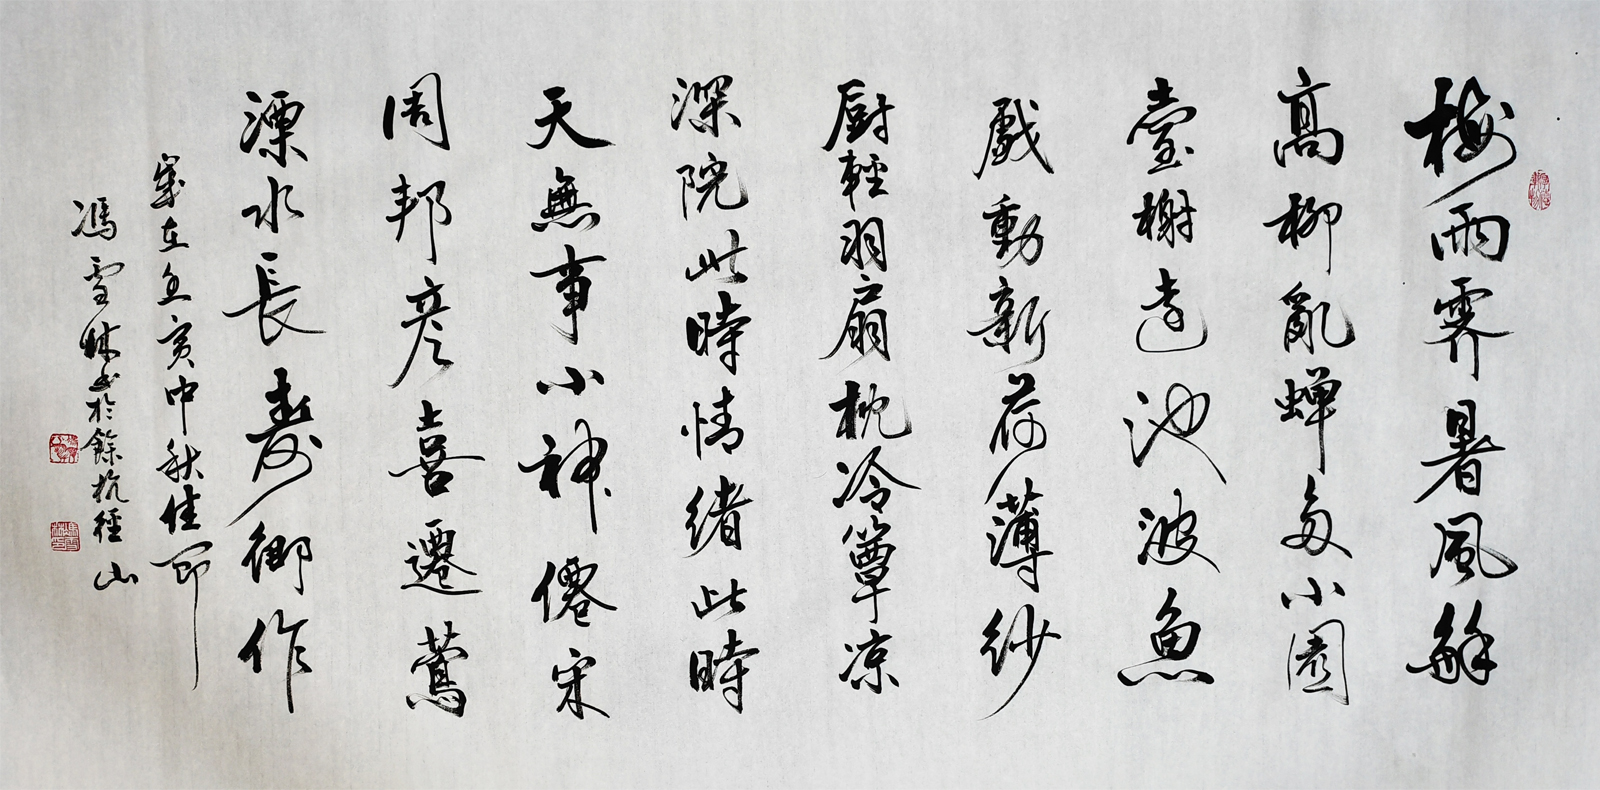 梅雨霽暑風解
高柳亂蟬多小園
臺榭遠池波魚
戲動新荷薄紗
厨輕羽扇枕冷簟凉
深院此時情緒此時
天無事小神僊宋
周邦彦喜遷鶯
溧水長壽鄉作
歲在己亥中秋佳節
馮雪林書於餘杭徑山